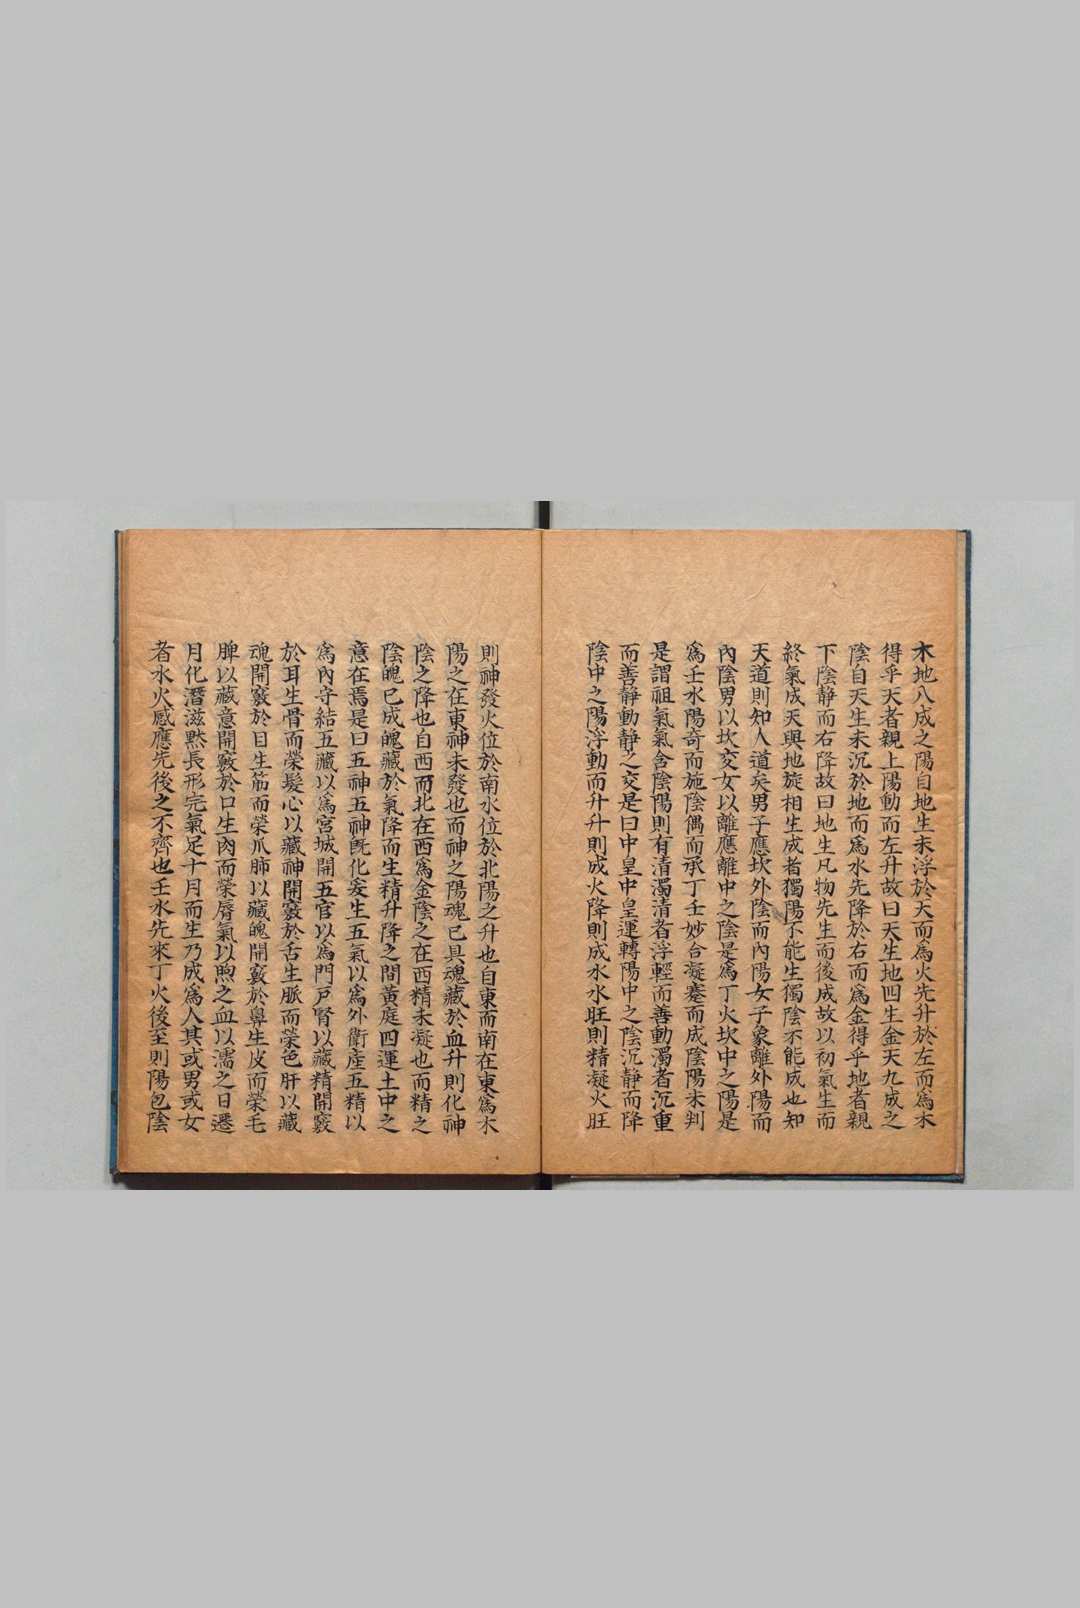 木地八成之陽自地生未浮於天而為火先升於左而為木
得乎天者親上陽動而左升故曰天生地四生金天九成之
陰自天生未沉於地而為水先降於右而為金得乎地者親
下陰静而右降故曰地生凡物先生而後成故以初氣生而
終氣成天與地旋相生成者獨陽不能生獨陰不能成也知
天道則知人道矣男子應坎外陰而內陽女子象離外陽而
內陰男以坎交女以離應離中之陰是為丁火坎中之陽是
為壬水陽奇而施陰偶而承丁壬妙合凝蹇而成陰陽未判
是謂祖氣氣含陰陽則有清濁清者浮輕而善動濁者沉重
而善静動静之交是曰中皇中皇運轉陽中之陰沉静而降
陰中之陽浮動而升升則成火降則成水水旺則精凝火旺
則神發火位於南水位於北陽之升也自東而南在東為木
陽之在東神未發也而神之陽魂已具魂藏於血升則化神
陰之降也自西而北在西為金陰之在西精未凝也而精之
陰魄已成魄藏於氣降而生精升降之間黃庭四運土中之
意在焉是曰五神五神旣化爰生五氣以為外衛產五精以
為內守結五藏以為宮城開五官以為門戶腎以藏精開竅
於耳生骨而榮髮心以藏神開竅於舌生脈而榮色肝以藏
魂開竅於目生筋而榮爪肺以藏魄開竅於鼻生皮而榮毛
脾以藏意開竅於口生肉而榮脣氣以煦之血以濡之日遷
月化潛滋黙長形完氣足十月而生乃成為人其或男或女
者水火感應先後之不齊也壬水先來丁火後至則陽包陰